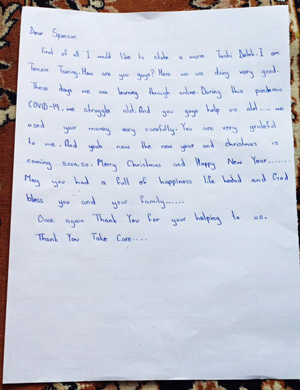 Dear Sponsor,
First of all I would like to state a warm Tashi Delek. I am
Tenzin Tsering. How are you guys? Here we are doing very good.
These days we are learning through online. During this pandemic
COVID-19. we struggle alot. And you guys help us alot.... we
used your money very carefully. You are very grateful
to me. And yeah now the new year and christmas is
coming soon, so. Merry Christmas and Happy New Year.......
May you had a full of happiness life and God
bless you and your family......
Once again Thank You for your helping to us.
Thank You Take Care....